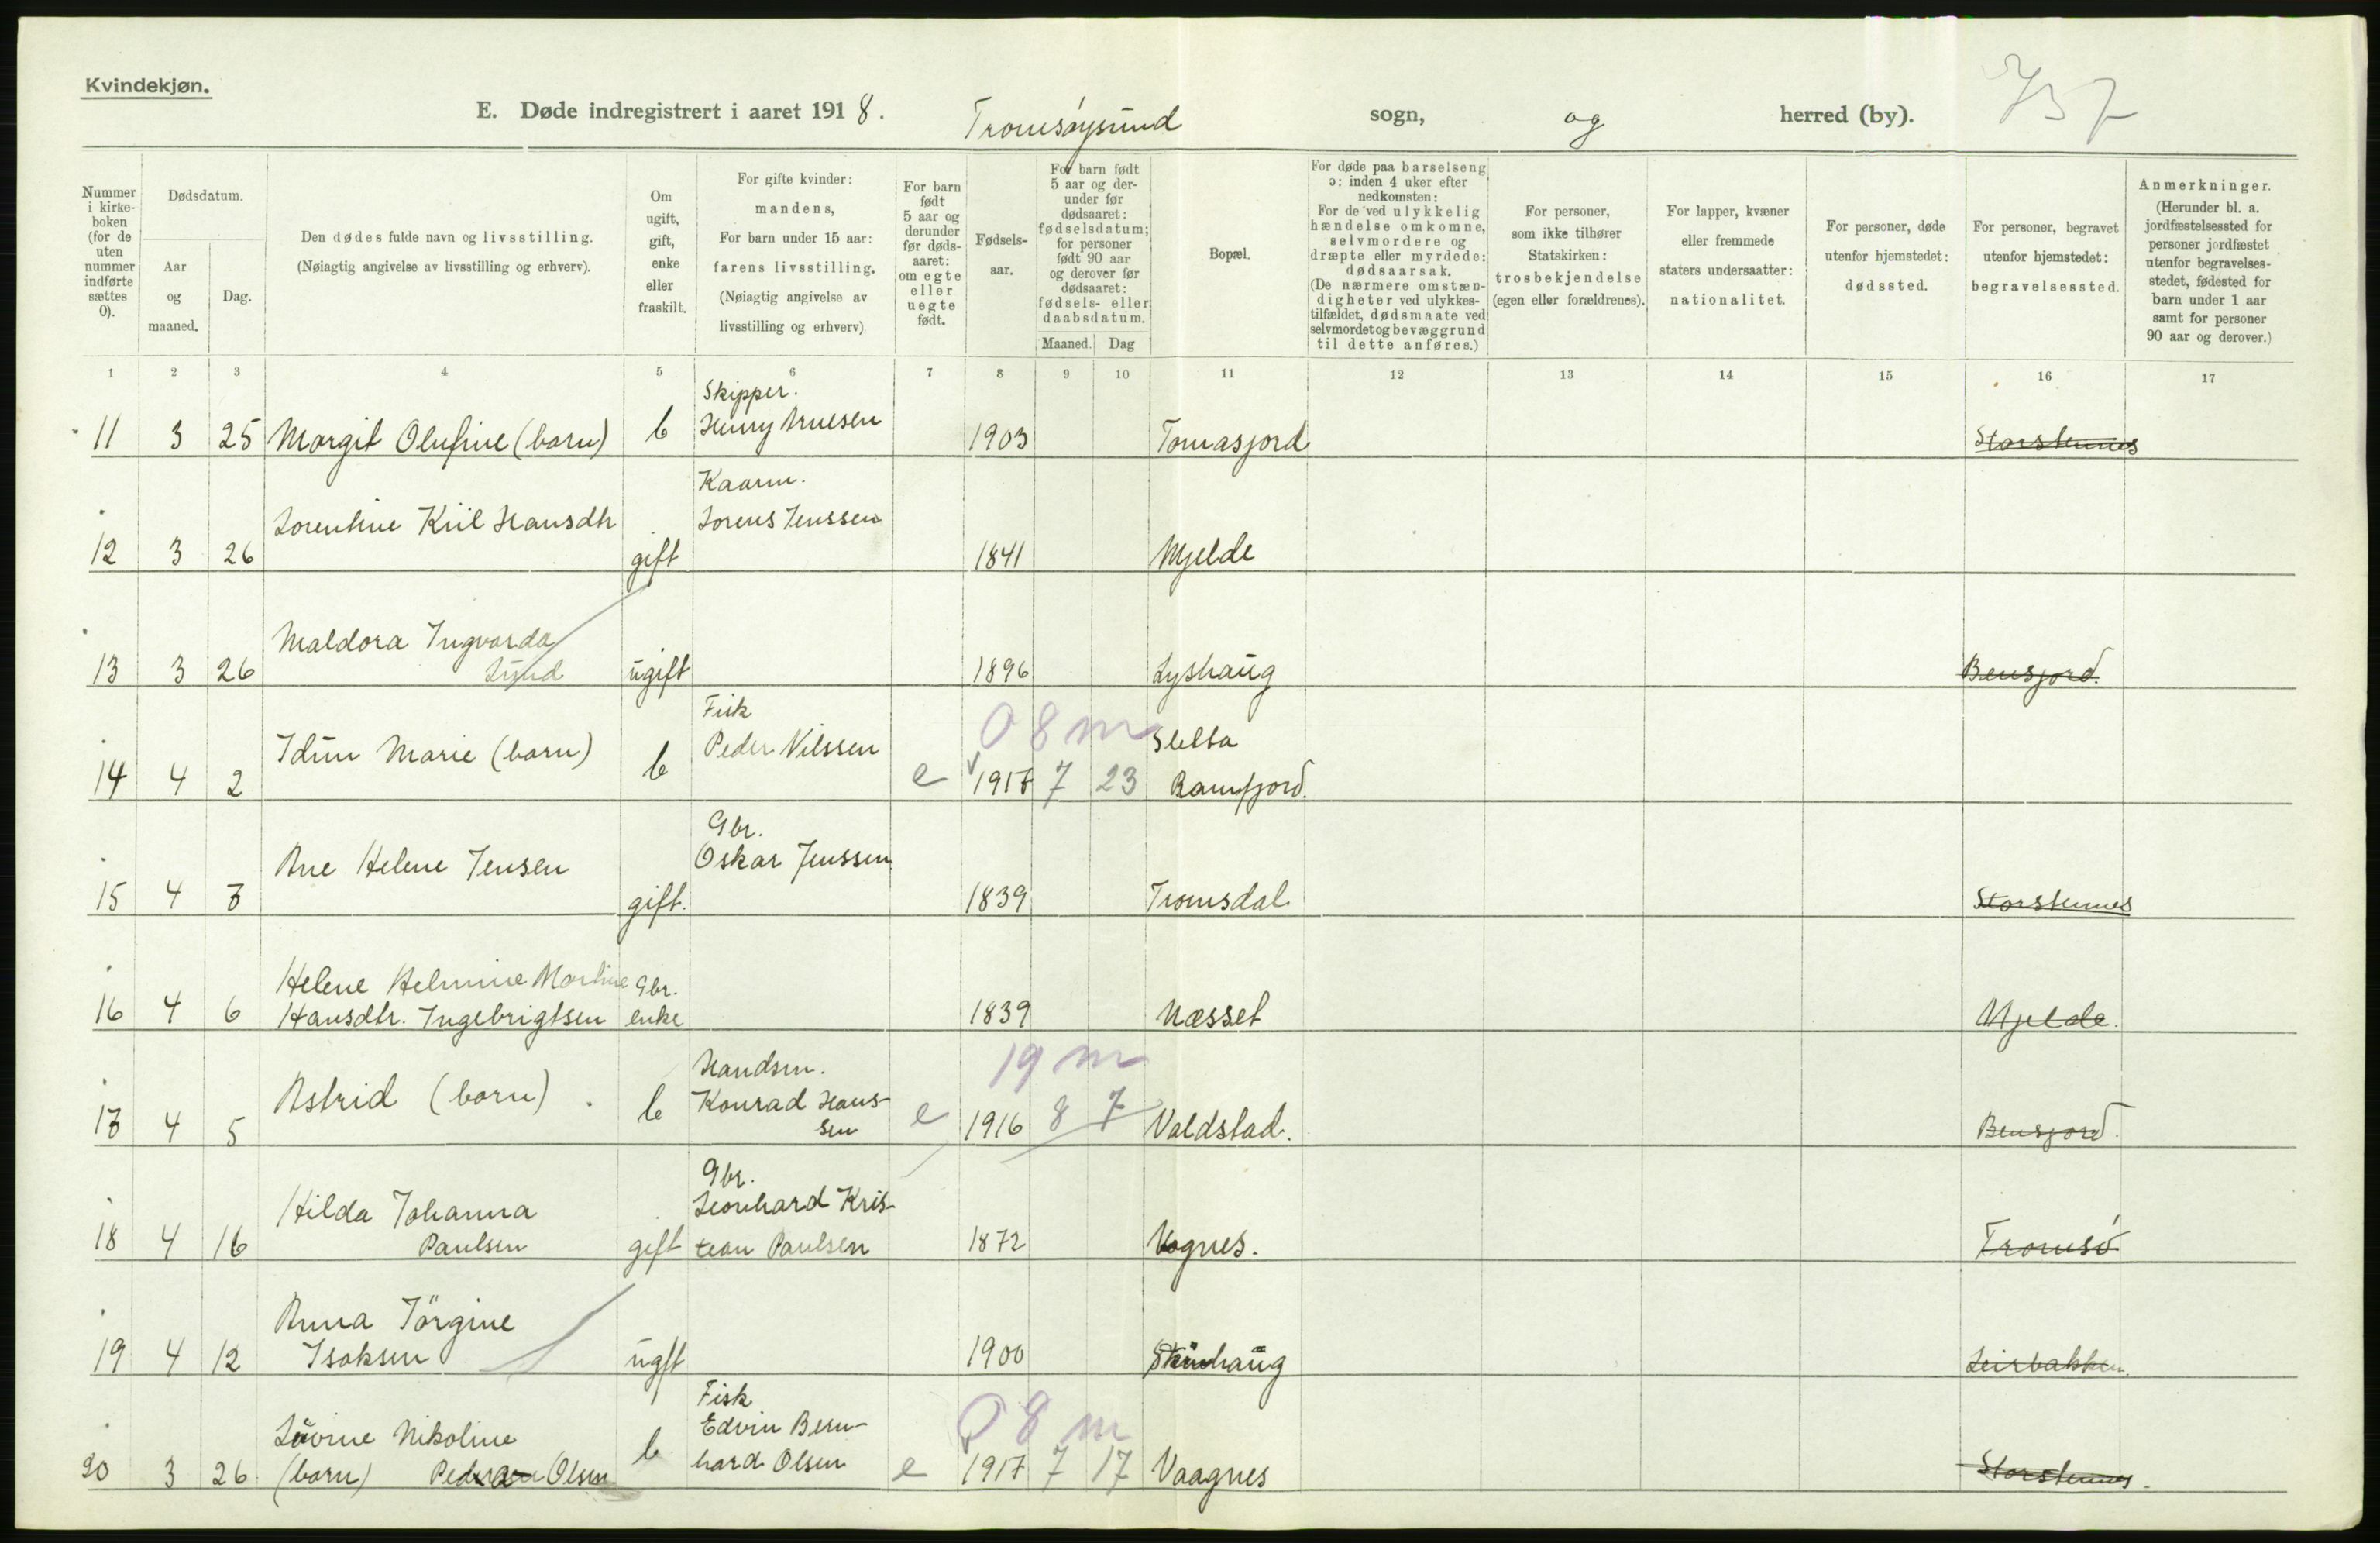 Kvindekjøn.
E. Døde indregistrert i aaret 1918. Tromsøysund sogn, og herred (by).
Nummer i kirkeboken (for de uten nummer indførte sættes 0).
Dødsdatum.
Aar og maaned.
Dag.
Den dødes fulde navn og livsstilling.
(Nøiagtig angivelse av livsstilling og erhverv).
Om ugift, gift, enke eller fraskilt.
For gifte kvinder: mandens,
For barn under 15 aar: farens livsstilling.
(Nøiagtig angivelse av livsstilling og erhverv)
For barn født 5 aar og derunder før dødsaaret: om egte eller uegte født.
Fødselsaar.
For barn født 5 aar og derunder før dødsaaret: fødselsdatum; for personer født 90 aar og derover før dødsaaret: fødsels- eller daabsdatum.
Maaned. Dag
Bopæl.
For døde paa barselseng ɔ: inden 4 uker efter nedkomsten:
For de ved ulykkelig hændelse omkomne, selvmordere og dræpte eller myrdede: dødsaarsak.
(De nærmere omstændigheter ved ulykkestilfældet, dødsmaate ved selvmordet og bevæggrund til dette anføres.)
For personer, som ikke tilhører Statskirken: trosbekjendelse (egen eller forældrenes).
For lapper, kvæner eller fremmede staters undersaatter: nationalitet.
For personer, døde utenfor hjemstedet: dødssted.
For personer, begravet utenfor hjemstedet: begravelsessted.
Anmerkninger.
(Herunder bl. a. jordfæstelsessted for personer jordfæstet utenfor begravelsesstedet, fødested for barn under 1 aar samt for personer 90 aar og derover.)
1 2 3 4 5 6 7 8 9 10 11 12 13 14 15 16 17
Skipper.
11 3 25 Margit Olufine (barn) b Henry 1903 Tomasjord Storstennes
Kaarm.
Lorentine Kiil Hansdtr Lorens Jenssen
12 3 26 gift 1841 Mjelde
Maldora Ingvarda
13 3 26 Lund ugift 1896 Lyshaug Bensjord.
Fisk 08 m
Idun Marie (barn) b Peder Nilssen Sletta
14 4 2 e 1917 7 23 Ramfjord.
Gbr.
Ane Helene Jensen Oskar Jenssen
15 4 7 gift. 1839 Tromsdal Storstennes
Helene Helmine Martine Gbr.
16 4 6 Hansdtr. Ingebrigtsen enke 1839 Næsset Mjelde.
Handsm. 19 m
Astrid (barn) b Konrad Hans-
17 4 5 sen e 1916 8 7 Valdstad. Bensjord.
Gbr.
Hilda Johanna Leonhard Kris-
18 4 16 Paulsen gift tean Paulsen 1872 Vognes. Tromsö
Anna Jörgine
19 4 12 Isaksen ugft 1900 Leirbakken.
Fisk 08 m
Nikoline b Edvin Bern-
20 3 26 (barn) Olsen hard Olsen e 1917 7 17 Vaagnes Storstennes.